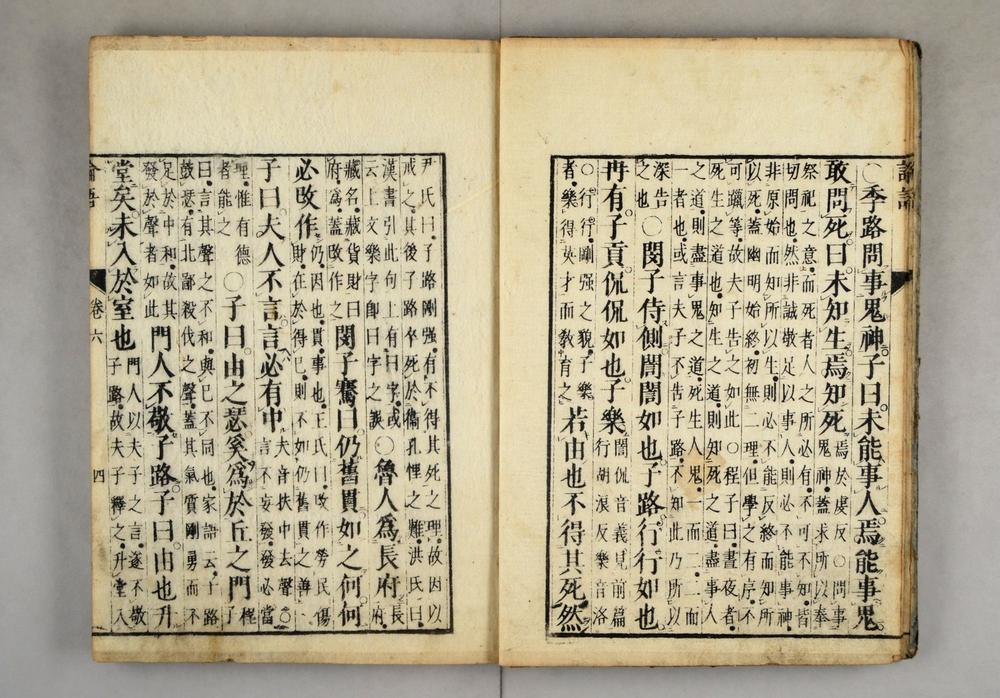 論語
○季路問事鬼神子曰未能事人焉能事鬼
敢問死曰未知生焉知死
焉於虔反○問事
鬼神蓋求所以奉
祭祀之意而死者人之所必有不可不知皆
切問也然非誠敬足以事人則必不能事神
非原始而知所以生則必不能反終而知所
以死蓋幽明始終初無二理但學之有序不
可躐等故夫子告之如此○程子曰晝夜者
死生之道也知生之道則知死之道盡事人
之道則盡事鬼之道死生人鬼一而二二而
一者也或言夫子不告子路不知此乃所以
深告
之也
○閔子侍側誾誾如也子路行行如也
冉有子貢侃侃如也子樂
誾侃音義見前篇
行胡浪反樂音洛
○行行剛强之貌子樂
者樂得英才而敎育之
若由也不得其死然
尹氏曰子路剛强有不得其死之理故因以
戒之其後子路卒死於衛孔悝之難洪氏曰
漢書引此句上有曰字或
云上文樂字卽曰字之誤
○魯人爲長府
長
府
藏名藏貨財曰
府爲蓋改作之
閔子騫曰仍舊貫如之何何
必改作
仍因也貫事也王氏曰改作勞民傷
財在於得已則不如仍舊貫之善
子曰夫人不言言必有中
夫音扶中去聲○
言不妄發發必當
理惟有德
者能之
○子曰由之瑟奚爲於丘之門
程
子
曰言其聲之不和與己不同也家語云子路
鼓瑟有北鄙殺伐之聲蓋其氣質剛勇而不
足於中和故其
發於聲者如此
門人不敬子路子曰由也升
堂矣未入於室也
門人以夫子之言遂不敬
子路故夫子釋之升堂入
論語
卷六
四